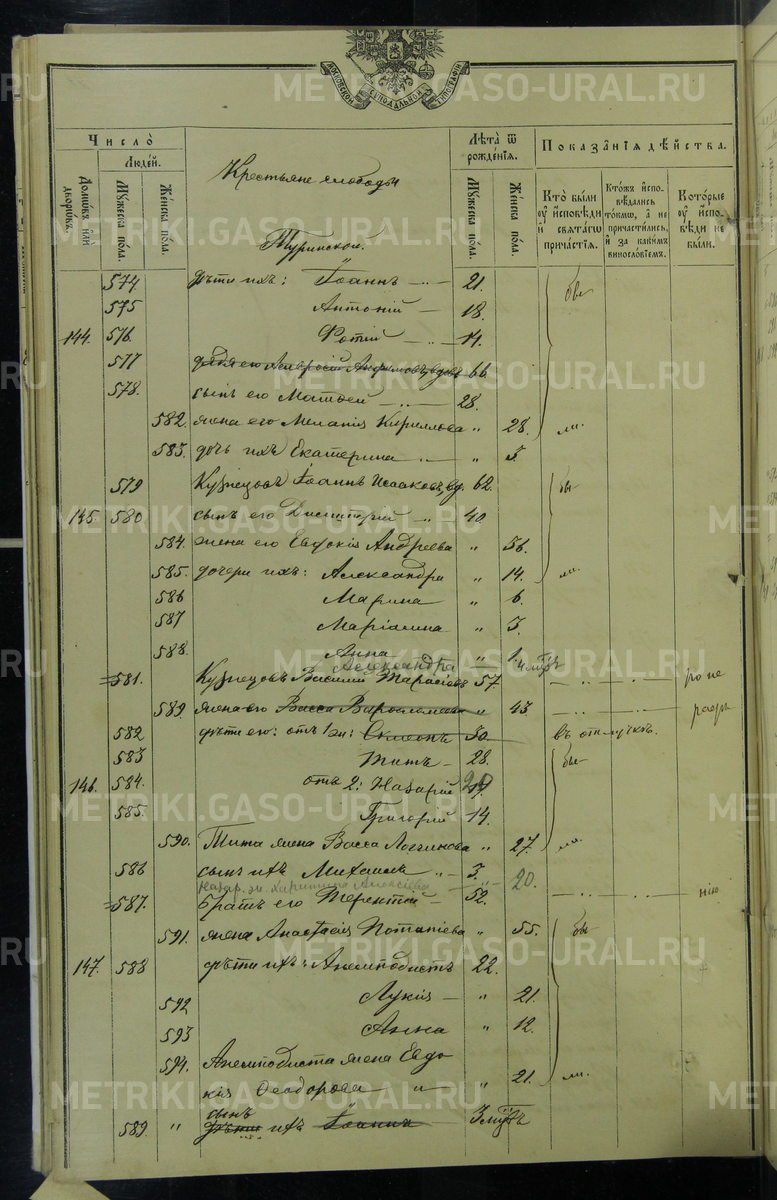 МОСКОВСКОЙ СѴНОДАЛЬНОЙ ТИПОГРАФІИ
METRIKI.GASO-URAL.RU
Число̀
Людей.
Домѡвъ или дворѡвъ.
Мꙋжеска пола.
Женска пола.
Крестьяне слободы
Туринской.
Лѣта ѿ рожденїѧ.
Мꙋжеска пола.
Женска пола.
Показанїѧ дѣйства.
Кто̀ были оу исповѣди и свѧтагѡ причастїѧ.
Кто̀жъ исповѣдались то́кмѡ, а не причастились, и за какимъ винословїемъ.
Кото́рые оу исповѣди не были.
574 дѣти ихъ: Іоаннъ — 21. бы
575 Антоній — 18.
144. 576. Фотій — 14.
577 дядя его Анфимовъ, вдовъ 66.
578. сынъ его Матѳей — 28.
582. жена его Меланія Кириллова „ 28. ли.
583. дочь ихъ Екатерина „ 3.
579 Кузнецовъ Іоаннъ Исааковъ, вд. 62. бы
145. 580 сынъ его Димитрій 40.
584. жена его Евдокія Андреева „ 56.
585. дочери ихъ: Александра „ 14. ли.
586 Марина „ 6.
587 Маріамна „ 3.
588. Анна „ 1.
Александра 4 мѣс
581. Кузнецовъ Василій Тарасовъ 57. по не
589. жена его Васса Варѳоломеева „ 43. раск
582 дѣти его: отъ 1 ж: Симеонъ 30. въ отлучкѣ.
583 Титъ — 28. бы
146. 584. отъ 2: Назарій 20
585. Григорій 14.
590. Тита жена Васса Логинова „ 27. ли.
586 сынъ ихъ Михаилъ „ 3.
Назар. ж. Харитина Алексѣева 20.
587. братъ его Терентій — 52. нію
591. жена Анастасія Потапіева „ 55. бы
147. 588 дѣти ихъ: Анемподистъ 22.
592 Лукія — „ 21.
593 Анна „ 12.
594. Анемподиста жена Евдо
кія Ѳеодорова „ „ 21. ли.
сынъ
589. „ дѣти ихъ Іоаннъ 3 мѣс